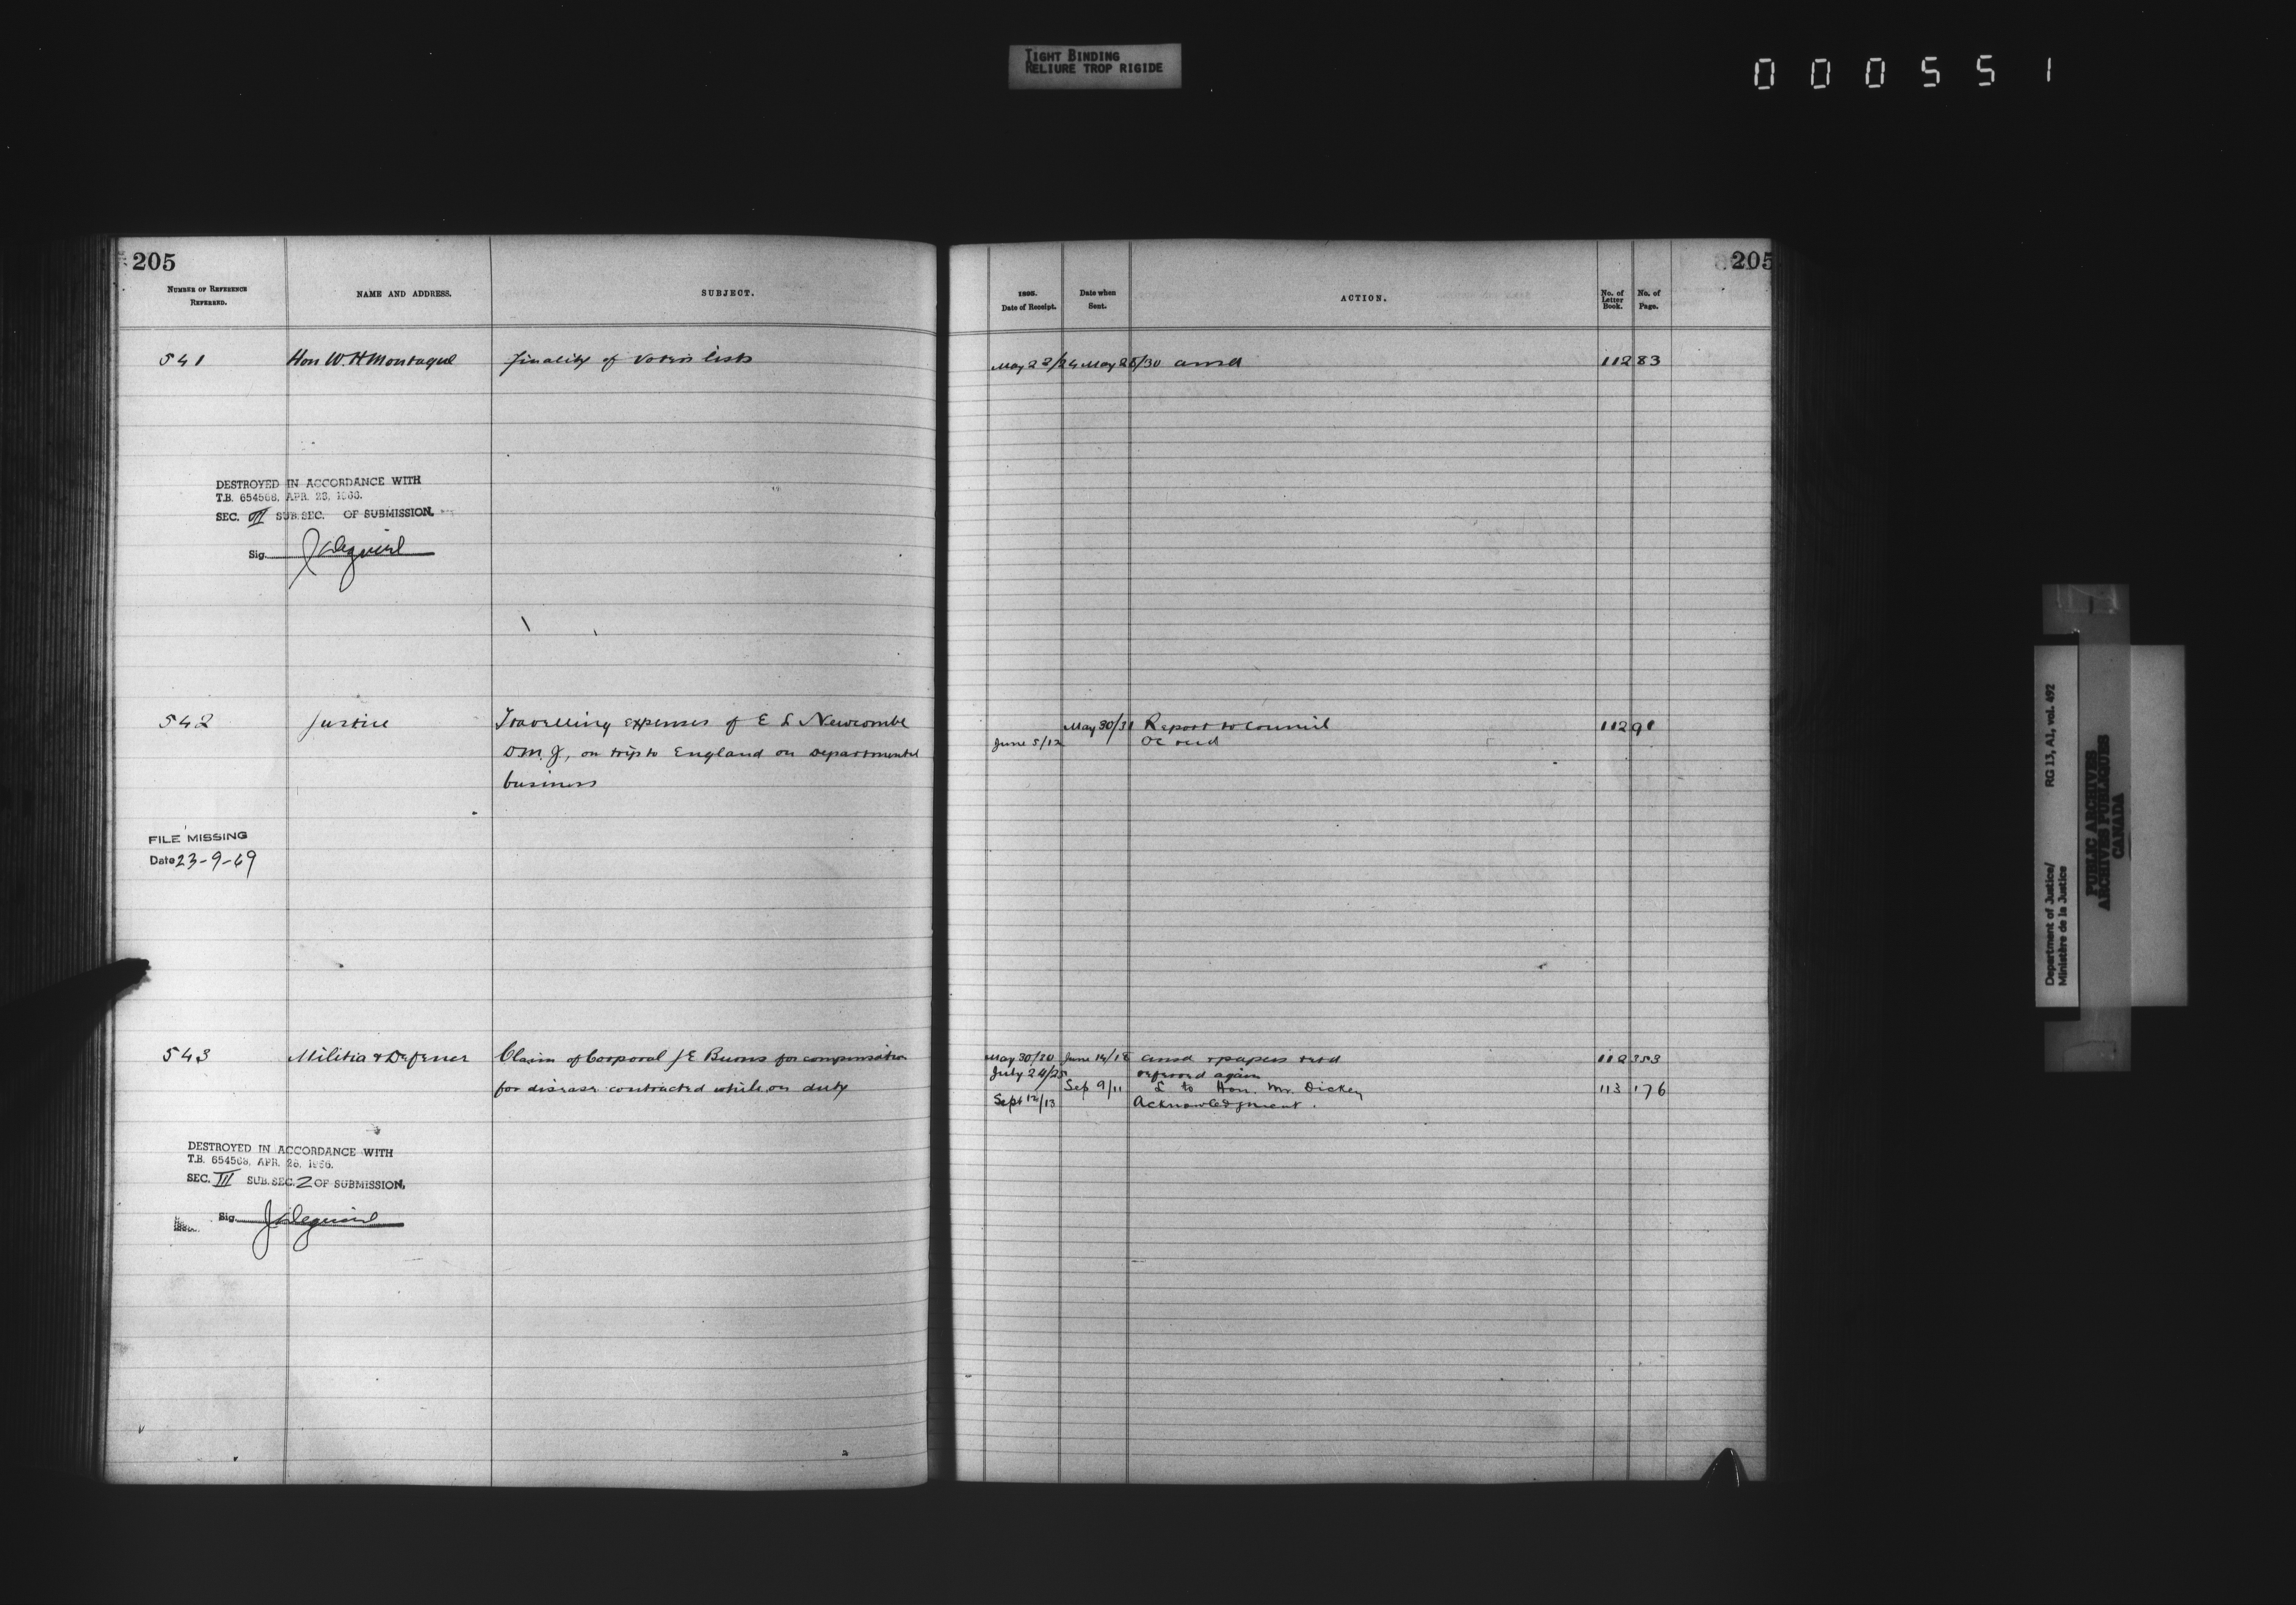 TIGHT BINDING
RELIURE TROP RIGIDE
000551
205
NUMBER OF REFERENCE
REFERRED.
NAME AND ADDRESS.
SUBJECT.
541 Hon W. H Montague Finality of Voters lists
DESTROYED IN ACCORDANCE WITH
T.B. 654568, APR. 28, 1966.
SEC. III SUB.SEC. OF SUBMISSION.
Sig.
542 Justice Travelling expenses of E L Newcombe
D.M.J, on trip to England on Departmental
business
FILE MISSING
Date 23-9-69
543 Militia & Defence Claim of Corporal J E Burns for compensation
for disease contracted while on duty
DESTROYED IN ACCORDANCE WITH
T.B. 654568, APR. 28, 1966.
SEC. III SUB.SEC. 2 OF SUBMISSION.
Sig.
205
1895.
Date of Receipt.
Date when
Sent.
ACTION.
No. of
Letter
Book.
No. of
Page.
May 22/24 May 28/30 ansd 112 83
May 30/31 Report to Council 112 91
June 5/12 OC recd
May 30/30 June 14/18 ansd & papers retd 112 353
July 24/25 referred again
Sep 9/11 L to Hon. Mr. Dickey 113 176
Sept 12/13 Acknowledgment.
Department of Justice/ RG 13, A1, vol. 492
Ministère de la Justice
PUBLIC ARCHIVES
ARCHIVES PUBLIQUES
CANADA